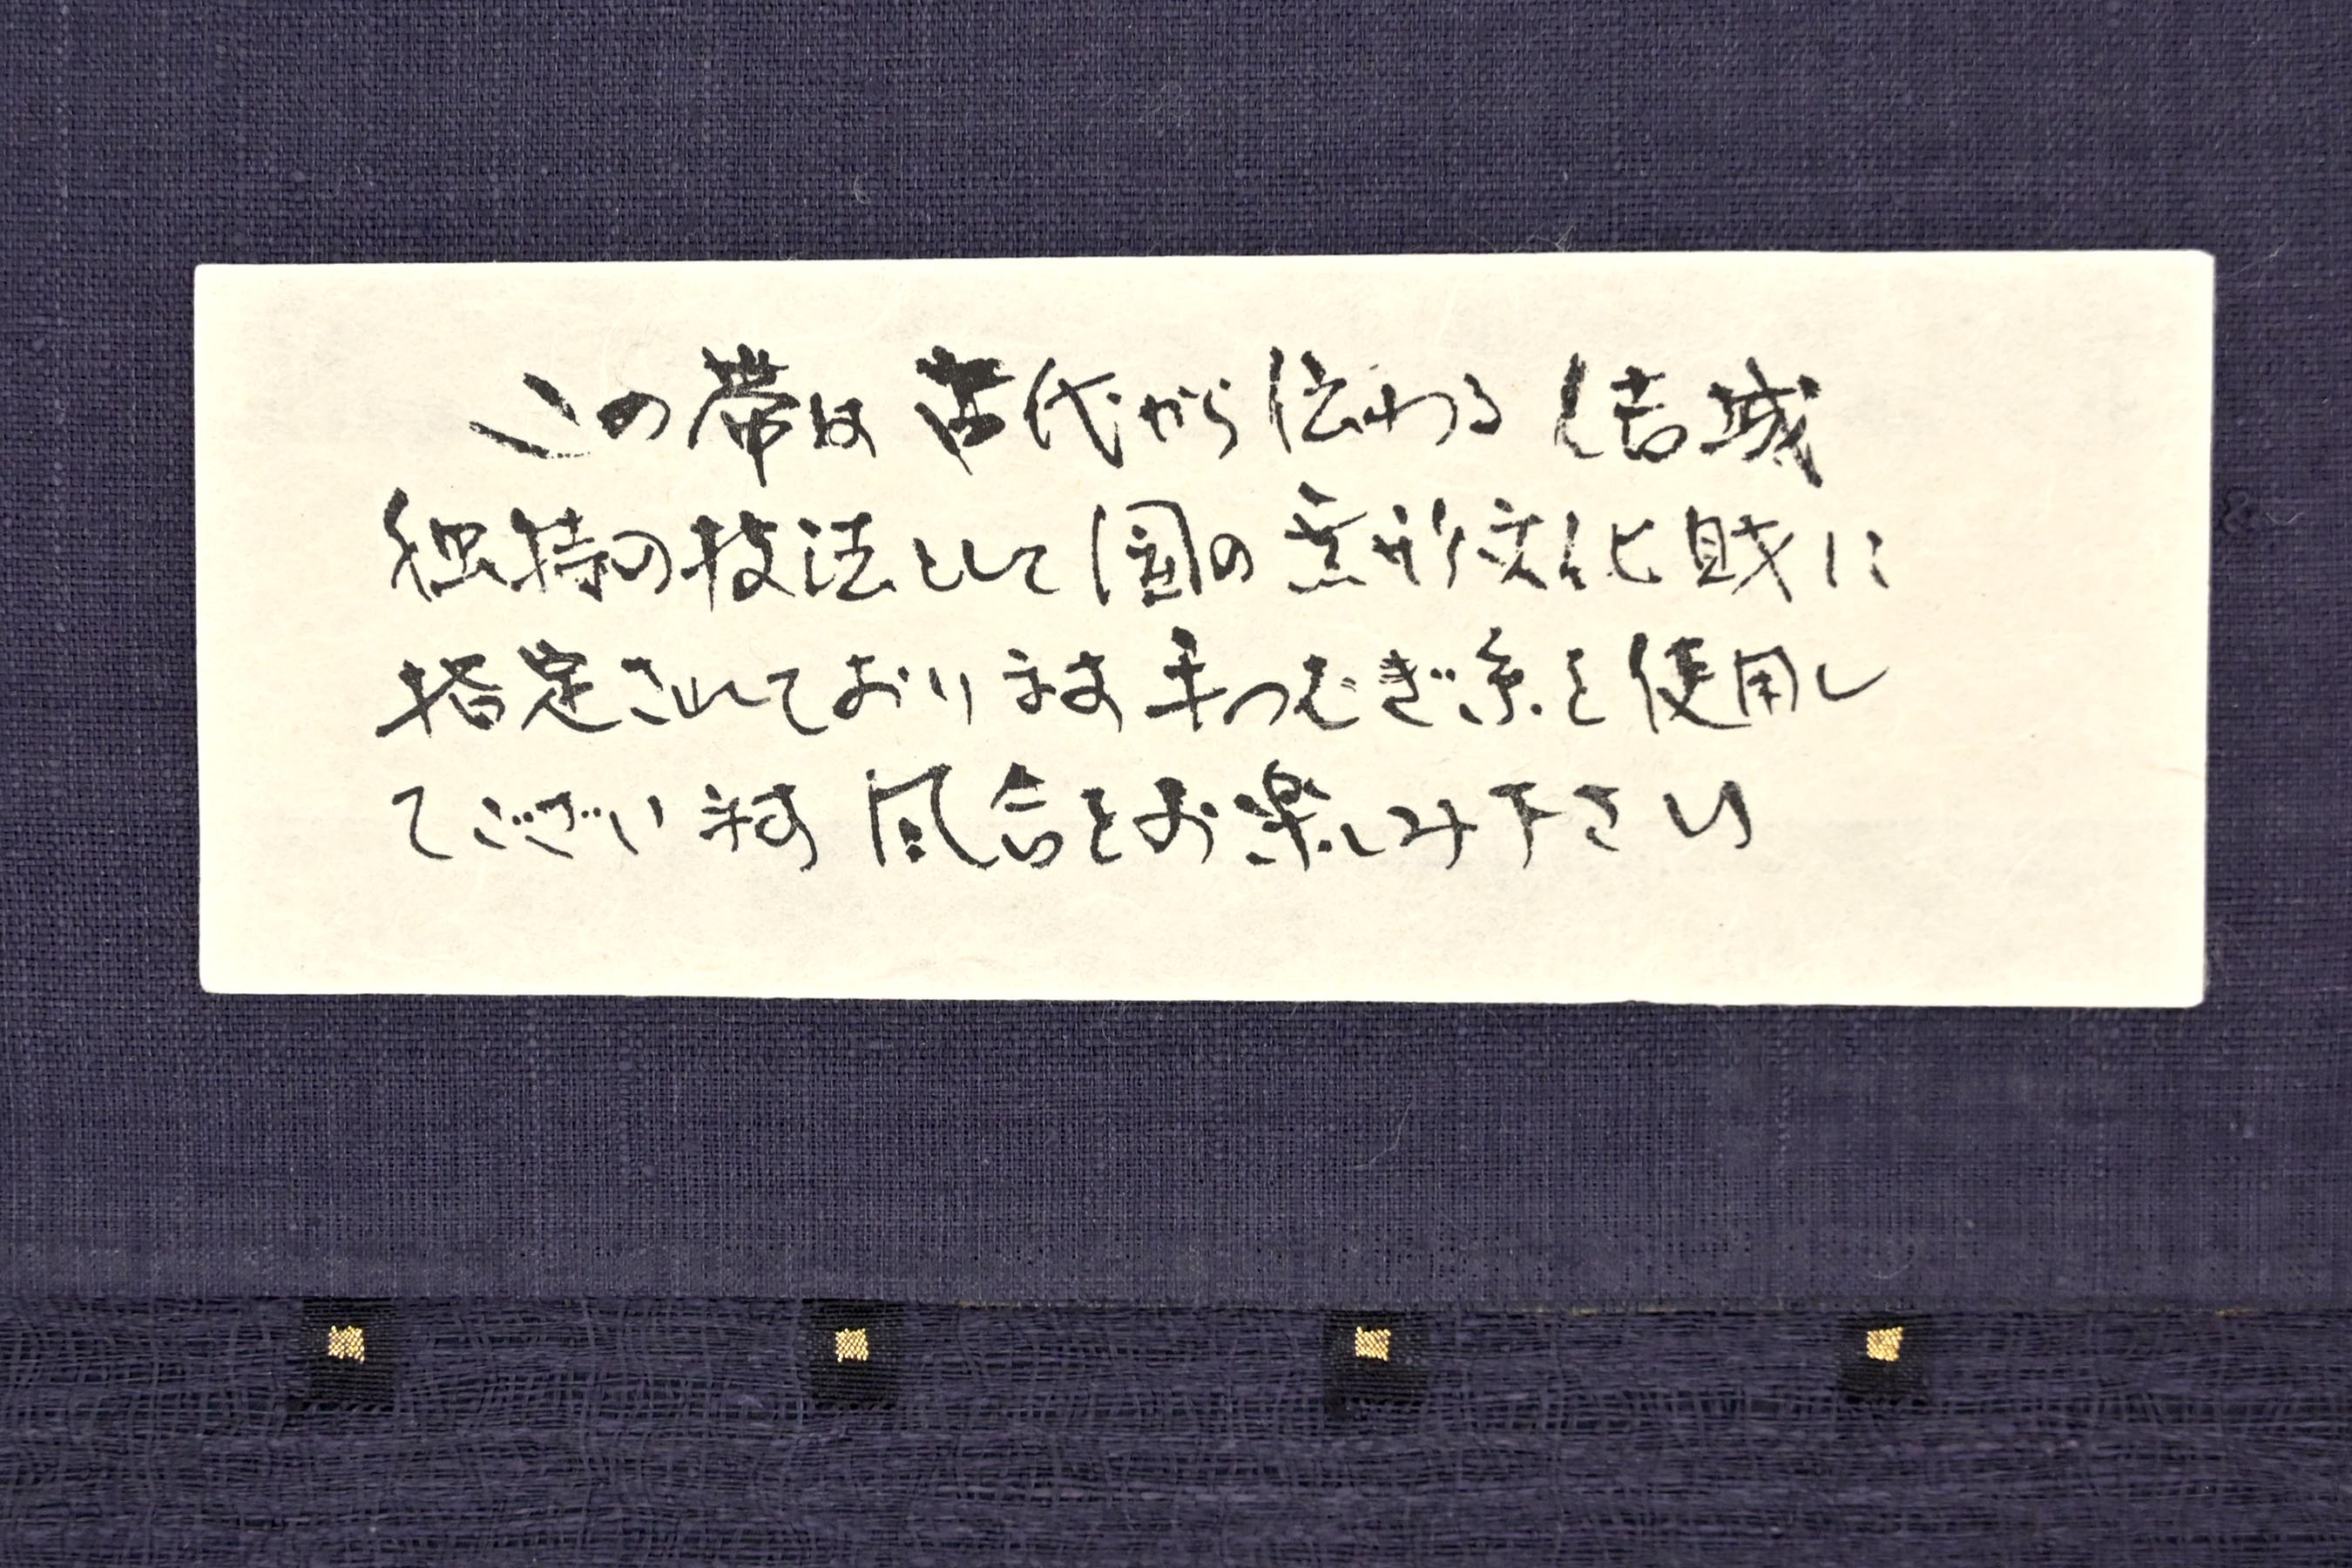 この帯は古代から伝わる結城
独特の技法として国の無形文化財に
指定されております手つむぎ糸を使用し
てございます風合をお楽しみ下さい